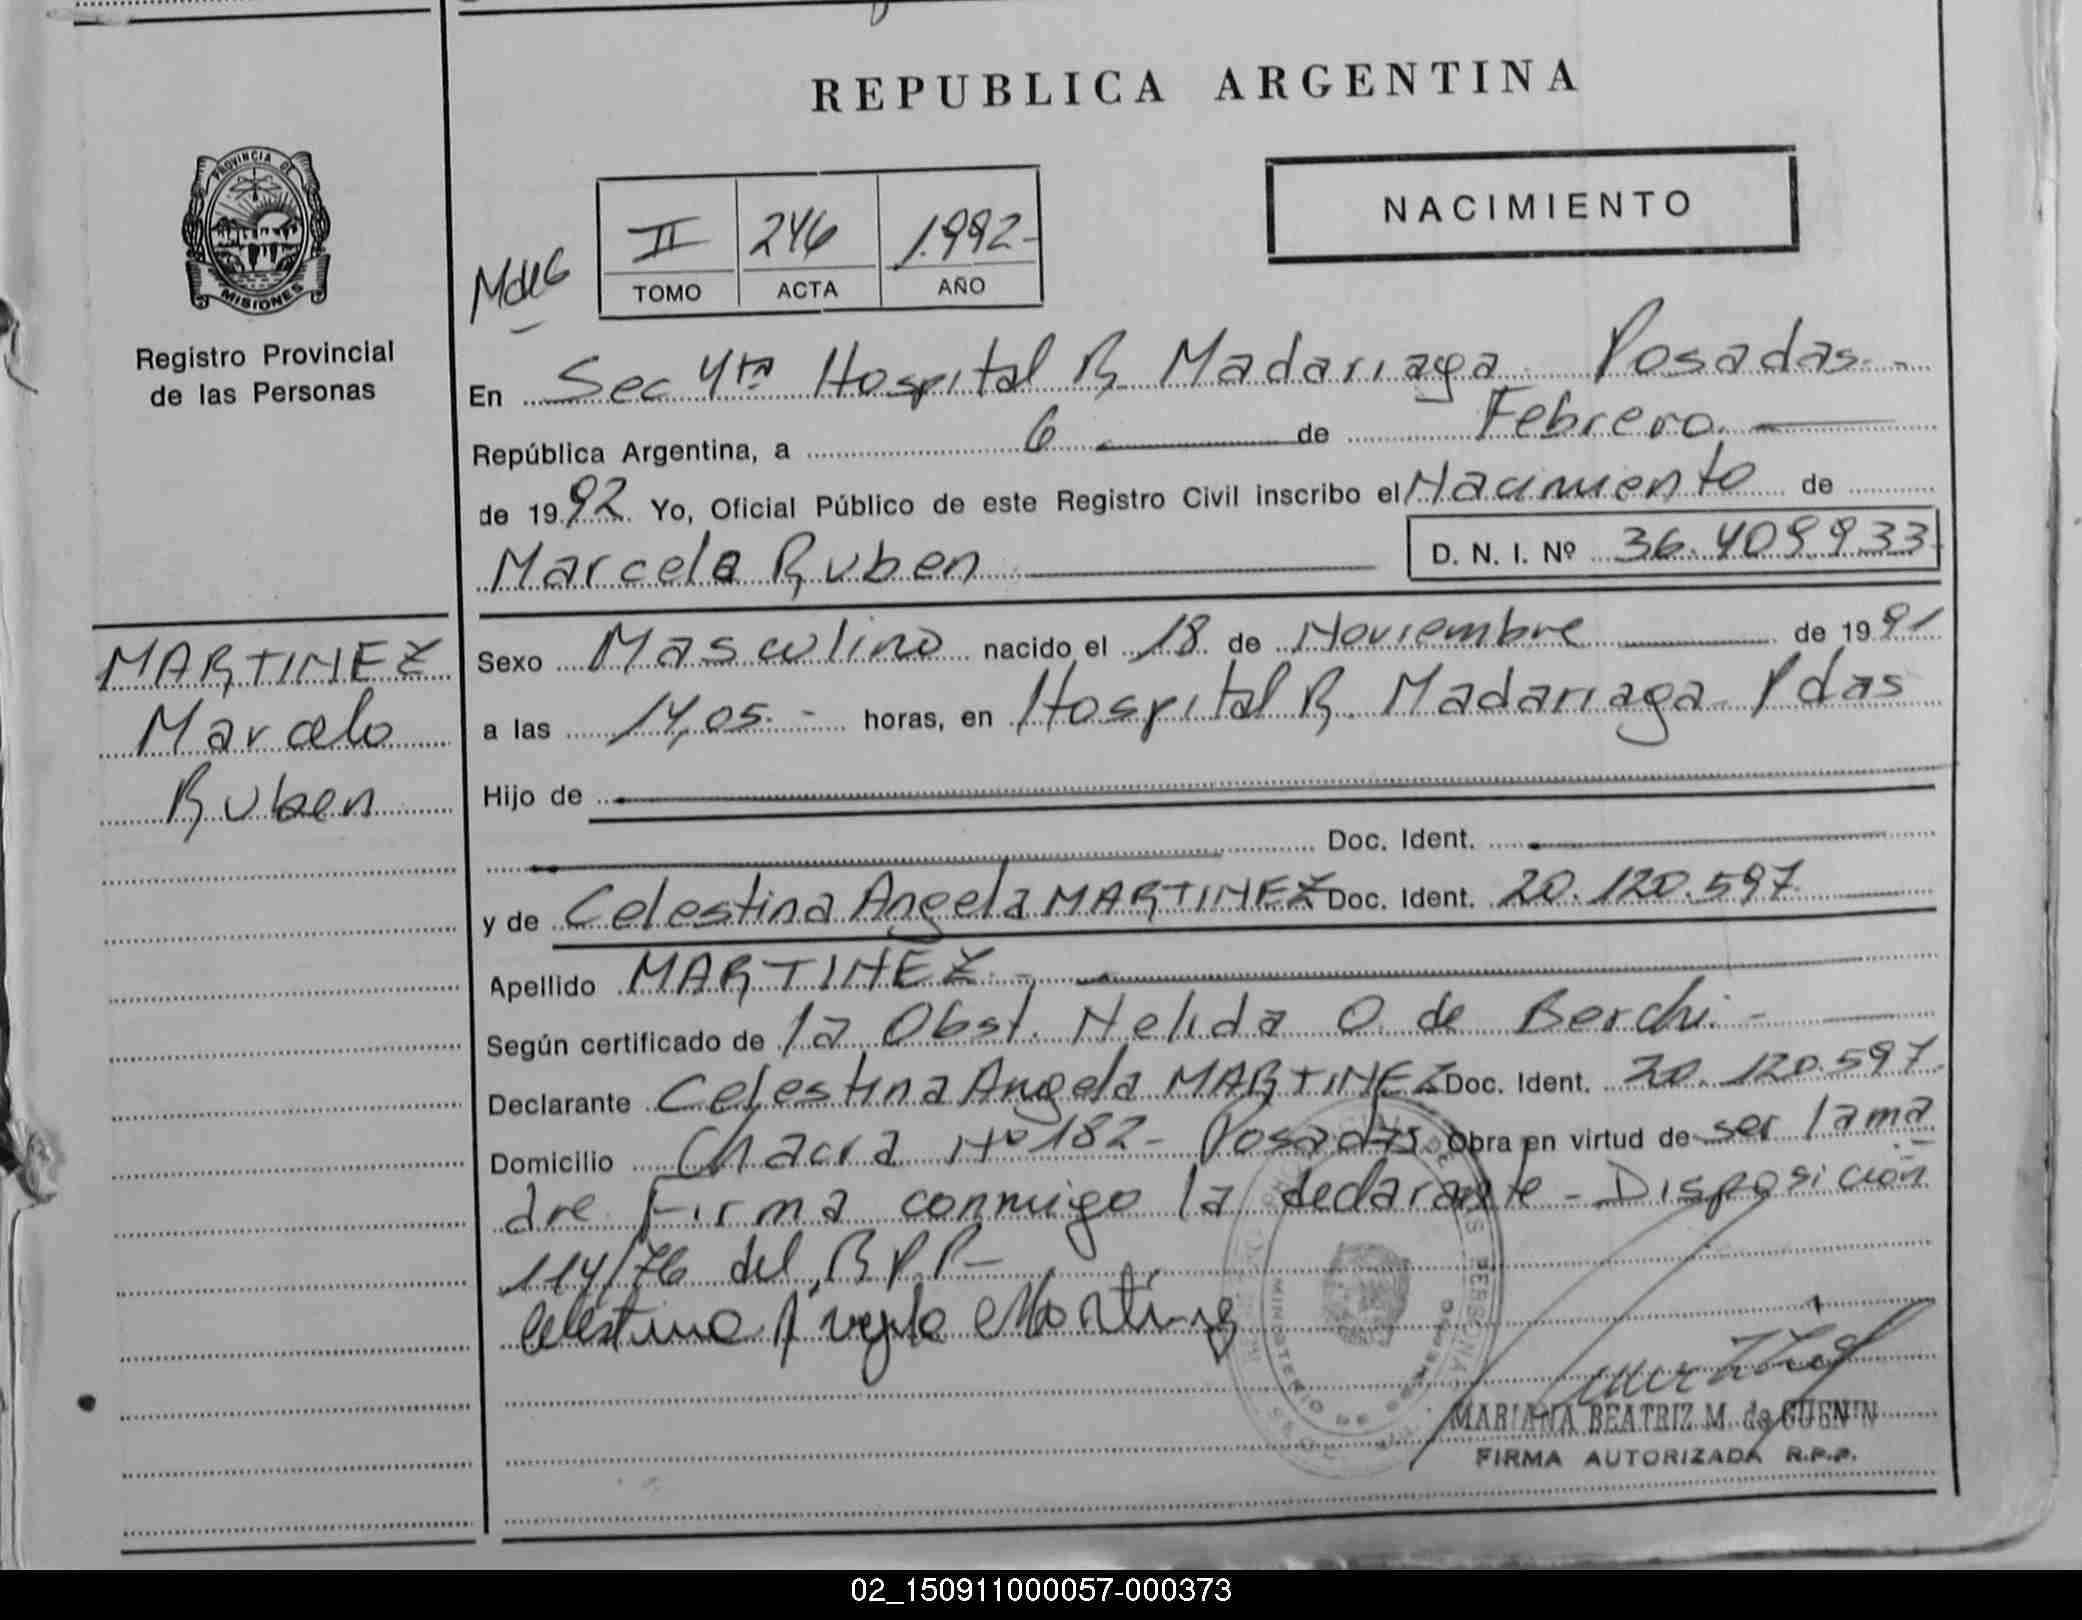 REPUBLICA ARGENTINA
PROVINCIA DE
MISIONES
Registro Provincial
de las Personas
NACIMIENTO
II 246 1.992-
TOMO ACTA AÑO
En Sec 4ta Hospital R. Madariaga Posadas.-
República Argentina, a 6 de Febrero.
de 1992. Yo, Oficial Público de este Registro Civil inscribo el Nacimiento de
Marcelo Ruben
D. N. I. Nº 36.409933
MARTINEZ
Marcelo
Ruben
Sexo Masculino nacido el 18 de Noviembre de 1991
a las 14,05.- horas, en Hospital R. Madariaga Pdas
Hijo de
Doc. Ident.
y de Celestina Angela MARTINEZ Doc. Ident. 20.120.597
Apellido MARTINEZ.-
Según certificado de la Obst. Nelida O. de Berchi.-
Declarante Celestina Angela MARTINEZ Doc. Ident. 20.120.597.
Domicilio Chacra Nº 182- Posadas. Obra en virtud de ser la ma
dre. Firma conmigo la declarante- Disposición
114/76 del R.P.P-
Celestina Angela Martinez
MINISTERIO DE GOBIERNO
MARIANA BEATRIZ M. de GUENIN
FIRMA AUTORIZADA R.P.P.
02_150911000057-000373